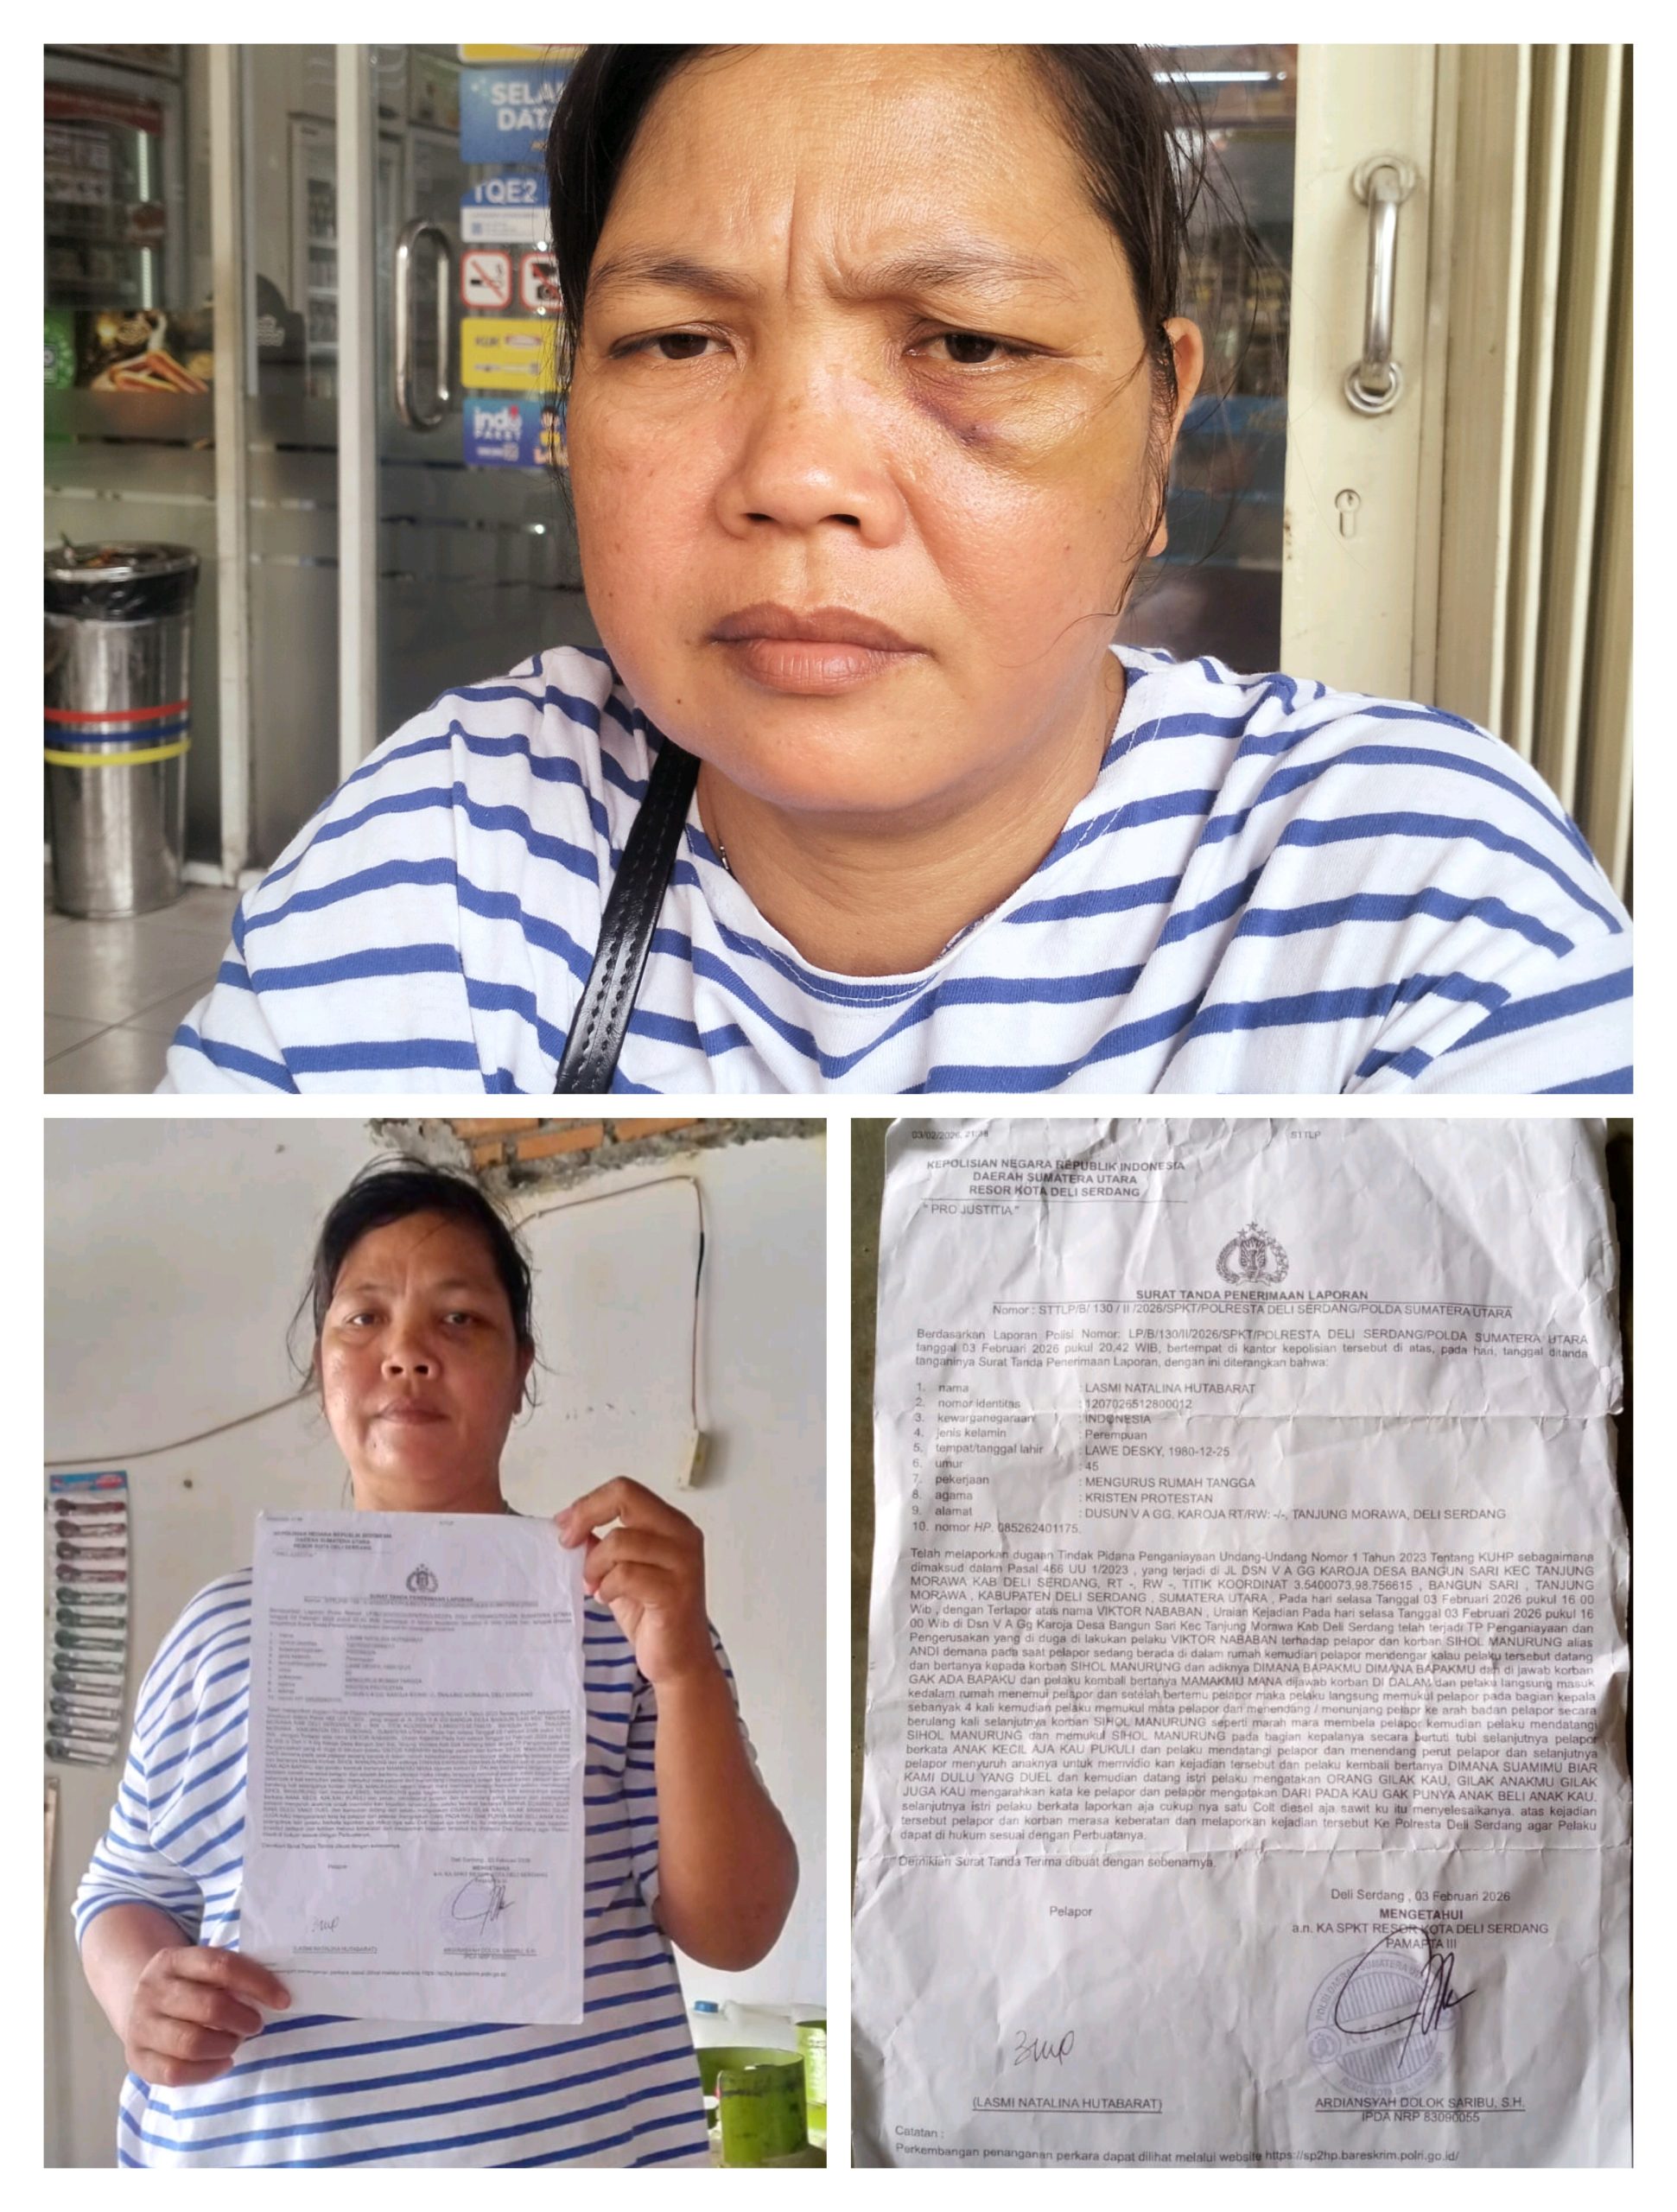 SELA
DAT
TQE2
indo
PAKET
03/02/2026, 21:18
STTLP
KEPOLISIAN NEGARA REPUBLIK INDONESIA
DAERAH SUMATERA UTARA
RESOR KOTA DELI SERDANG
" PRO JUSTITIA "
SURAT TANDA PENERIMAAN LAPORAN
Nomor : STTLP/B/ 130 / II /2026/SPKT/POLRESTA DELI SERDANG/POLDA SUMATERA UTARA
Berdasarkan Laporan Polisi Nomor: LP/B/130/II/2026/SPKT/POLRESTA DELI SERDANG/POLDA SUMATERA UTARA
tanggal 03 Februari 2026 pukul 20.42 WIB, bertempat di kantor kepolisian tersebut di atas, pada hari, tanggal ditanda
tanganinya Surat Tanda Penerimaan Laporan, dengan ini diterangkan bahwa:
1. nama : LASMI NATALINA HUTABARAT
2. nomor identitas : 1207026512800012
3. kewarganegaraan : INDONESIA
4. jenis kelamin : Perempuan
5. tempat/tanggal lahir : LAWE DESKY, 1980-12-25
6. umur : 45
7. pekerjaan : MENGURUS RUMAH TANGGA
8. agama : KRISTEN PROTESTAN
9. alamat : DUSUN V A GG. KAROJA RT/RW: -/-, TANJUNG MORAWA, DELI SERDANG
10. nomor HP. 085262401175.
Telah melaporkan dugaan Tindak Pidana Penganiayaan Undang-Undang Nomor 1 Tahun 2023 Tentang KUHP sebagaimana
dimaksud dalam Pasal 466 UU 1/2023 , yang terjadi di JL DSN V A GG KAROJA DESA BANGUN SARI KEC TANJUNG
MORAWA KAB DELI SERDANG, RT -, RW -, TITIK KOORDINAT 3.5400073,98.756615 , BANGUN SARI , TANJUNG
MORAWA , KABUPATEN DELI SERDANG , SUMATERA UTARA , Pada hari selasa Tanggal 03 Februari 2026 pukul 16 00
Wib , dengan Terlapor atas nama VIKTOR NABABAN , Uraian Kejadian Pada hari selasa Tanggal 03 Februari 2026 pukul 16
00 Wib di Dsn V A Gg Karoja Desa Bangun Sari Kec Tanjung Morawa Kab Deli Serdang telah terjadi TP Penganiayaan dan
Pengerusakan yang di duga di lakukan pelaku VIKTOR NABABAN terhadap pelapor dan korban SIHOL MANURUNG alias
ANDI demana pada saat pelapor sedang berada di dalam rumah kemudian pelapor mendengar kalau pelaku tersebut datang
dan bertanya kepada korban SIHOL MANURUNG dan adiknya DIMANA BAPAKMU DIMANA BAPAKMU dan di jawab korban
GAK ADA BAPAKU dan pelaku kembali bertanya MAMAKMU MANA dijawab korban DI DALAM dan pelaku langsung masuk
kedalam rumah menemui pelapor dan setelah bertemu pelapor maka pelaku langsung memukul pelapor pada bagian kepala
sebanyak 4 kali kemudian pelaku memukul mata pelapor dan menendang / menunjang pelapr ke arah badan pelapor secara
berulang kali selanjutnya korban SIHOL MANURUNG seperti marah mara membela pelapor kemudian pelaku mendatangi
SIHOL MANURUNG dan memukul SIHOL MANURUNG pada bagian kepalanya secara bertuti tubi selanjutnya pelapor
berkata ANAK KECIL AJA KAU PUKULI dan pelaku mendatangi pelapor dan menendang perut pelapor dan selanjutnya
pelapor menyuruh anaknya untuk memvidio kan kejadian tersebut dan pelaku kembali bertanya DIMANA SUAMIMU BIAR
KAMI DULU YANG DUEL dan kemudian datang istri pelaku mengatakan ORANG GILAK KAU, GILAK ANAKMU GILAK
JUGA KAU mengarahkan kata ke pelapor dan pelapor mengatakan DARI PADA KAU GAK PUNYA ANAK BELI ANAK KAU.
selanjutnya istri pelaku berkata laporkan aja cukup nya satu Colt diesel aja sawit ku itu menyelesaikanya. atas kejadian
tersebut pelapor dan korban merasa keberatan dan melaporkan kejadian tersebut Ke Polresta Deli Serdang agar Pelaku
dapat di hukum sesuai dengan Perbuatanya.
Demikian Surat Tanda Terima dibuat dengan sebenarnya.
Deli Serdang , 03 Februari 2026
Pelapor
MENGETAHUI
a.n. KA SPKT RESOR KOTA DELI SERDANG
PAMAPTA III
(LASMI NATALINA HUTABARAT)
ARDIANSYAH DOLOK SARIBU, S.H.
IPDA NRP 83090055
Catatan :
Perkembangan penanganan perkara dapat dilihat melalui website https://sp2hp.bareskrim.polri.go.id/